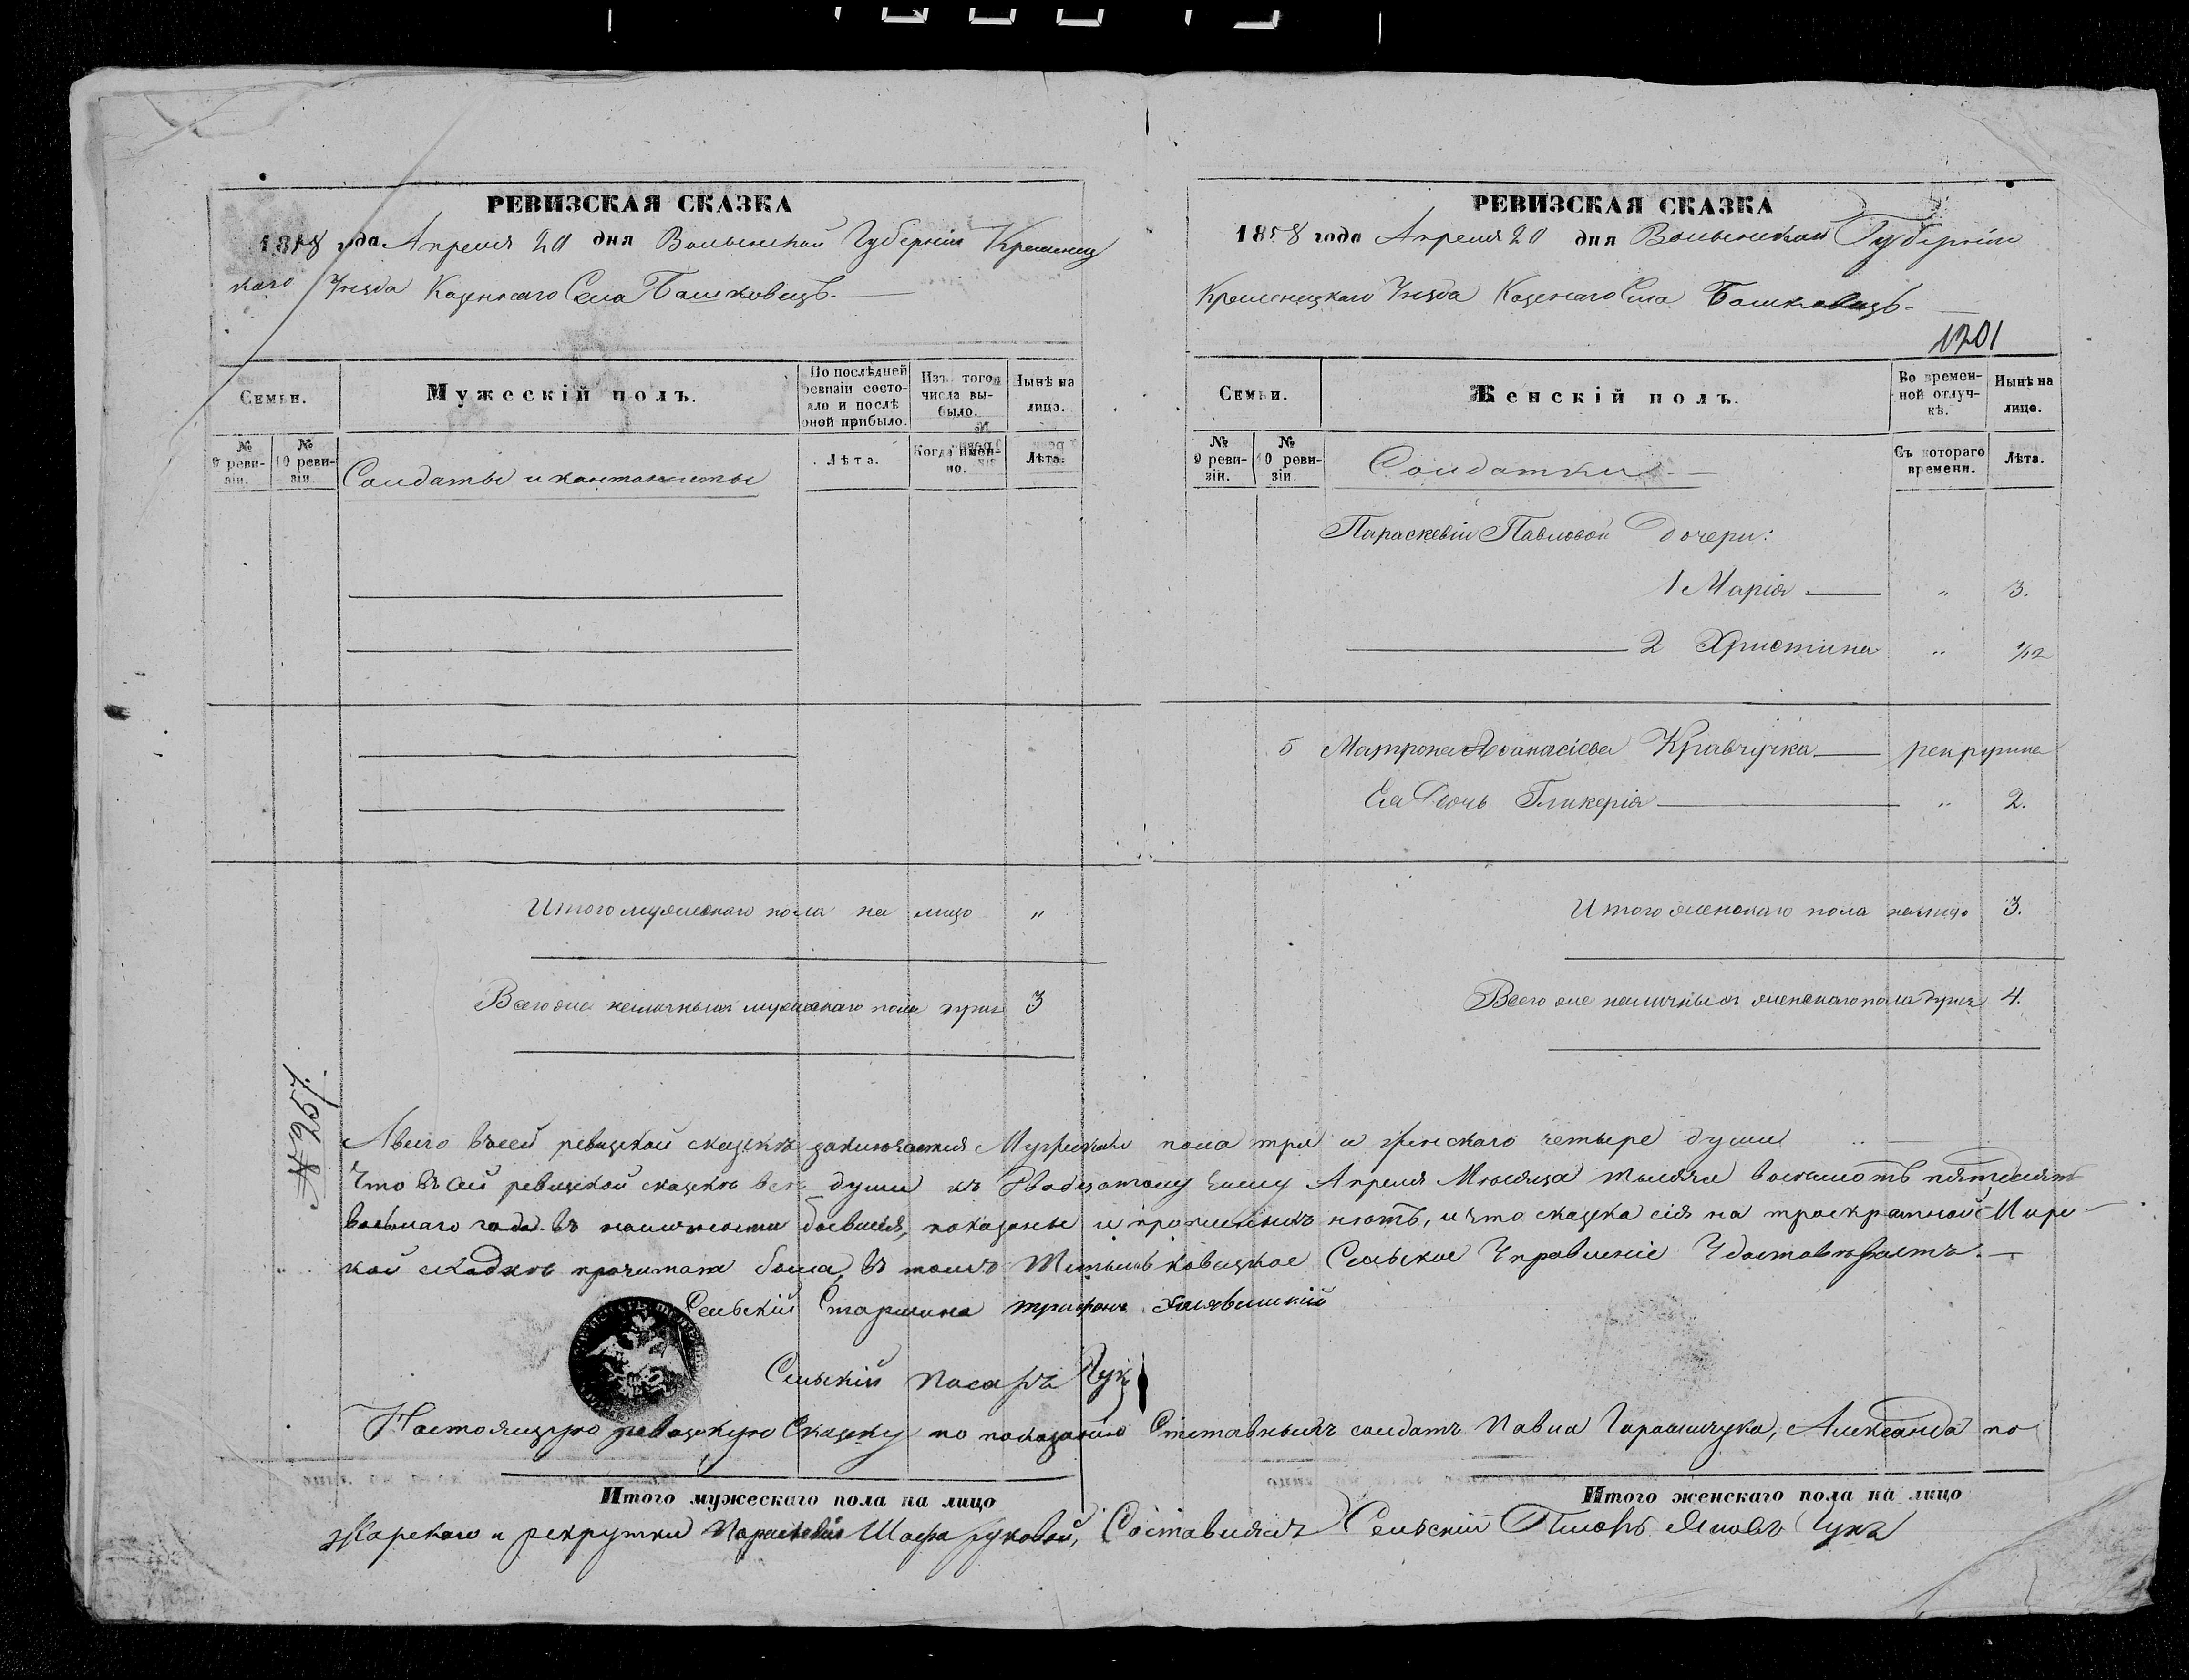 РЕВИЗСКАЯ СКАЗКА
1858 года Апреля 20 дня Волынской Губерніи Кременец
каго Уезда Казеннаго Села Башковецъ.
Семьи.
Мужескій полъ.
По послѣдней ревизіи состояло и послѣ оной прибыло.
Изъ того числа выбыло.
Нынѣ на лицо.
№ 9 ревизіи.
№ 10 ревизіи.
Солдаты и кантонисты
Лѣта.
Когда именно.
Лѣта.
Итого мужескаго пола на лицо "
Всего же неличныхъ мужескаго пола душъ 3
РЕВИЗСКАЯ СКАЗКА
1858 года Апреля 20 дня Волынской Губерніи
Кременецкаго Уезда Казеннаго Села Башковецъ.
1201
Семьи.
Женскій полъ.
Во временной отлучкѣ.
Нынѣ на лицо.
№ 9 ревизіи.
№ 10 ревизіи.
Солдатки
Съ котораго времени.
Лѣта.
Параскевіи Павловой Дочери:
1 Марія " 3.
2 Христина "
5 Матрона Афанасіева Кравчучка рекрутка
Ея Дочь Гликерія " 2.
Итого женскаго пола налицо 3.
Всего же наличныхъ женскаго пола душъ 4.
А всего въ сей ревизской сказкѣ заключается Мужескаго пола три и женскаго четыре души
Что въ сей ревизской сказкѣ все души къ Двадцатому числу Апреля Месяца тысяча восемьсотъ пятдесятъ
восьмаго года въ наличности бывшія, показаны и прописныхъ нетъ, и что сказка сія на троекратной Мирс
кой сходке прочитана была, въ томъ Сельское Управленіе Удостоверяетъ.
Сельскій Старшина Трифонъ
Сельскій писарь Цукъ
Настоящую ревизскую Сказку по показанію отставныхъ солдатъ Павла Гарасимчука, Александра по
Итого мужескаго пола на лицо
Итого женскаго пола на лицо
жарскаго и рекрутки Параскевіи Составлялъ Сельскій Писарь Яковъ Цукъ